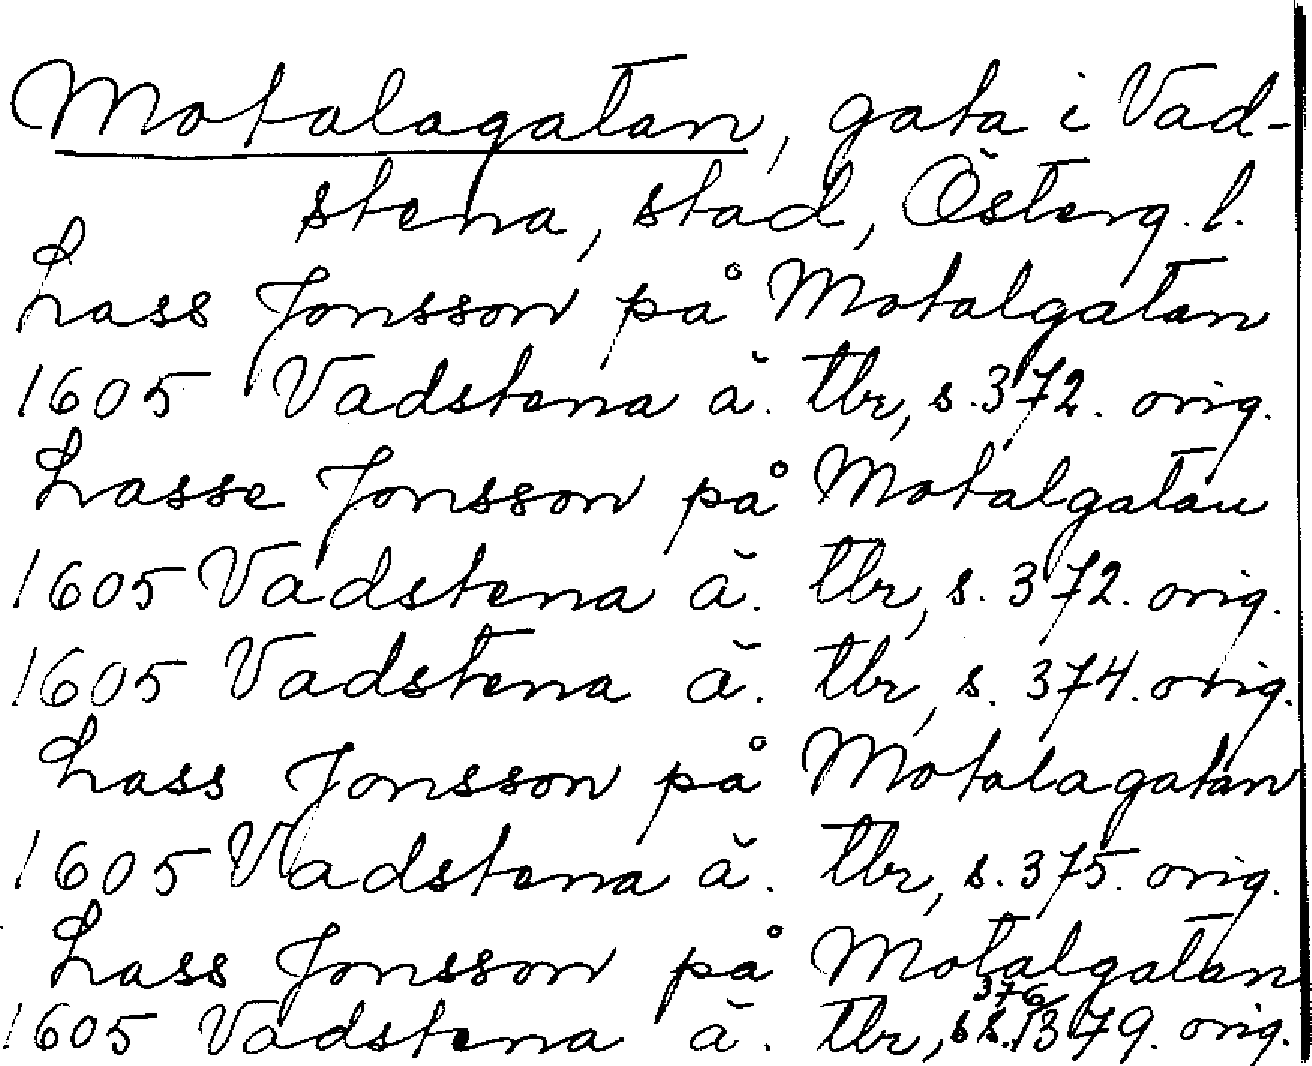 Motalagatan, gata i Vad-
stena, stad, Österg. l.
Lass Jonsson på Motalgatan
1605 Vadstena ä. tbr, s. 372. orig.
Lasse Jonsson på Motalgatan
1605 Vadstena ä. tbr, s. 372. orig.
1605 Vadstena ä. tbr, s. 374. orig.
Lass Jonsson på Motalagatan
1605 Vadstena ä. tbr, s. 375. orig.
Lass Jonsson på Motalgatan
376
1605 Vadstena ä. tbr, 379. orig.